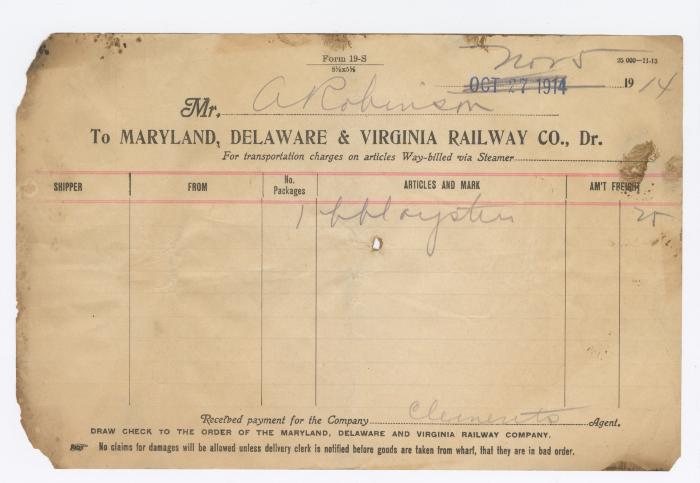 Form 19-S
8½x5½
25 000-11-13
Nov 5
OCT 27 1914
1914
Mr. A Robinson
To MARYLAND, DELAWARE & VIRGINIA RAILWAY CO., Dr.
For transportation charges on articles Way-billed via Steamer
SHIPPER FROM No. Packages ARTICLES AND MARK AM'T FREIGHT
1 bbl oysters 25
Received payment for the Company Clements Agent.
DRAW CHECK TO THE ORDER OF THE MARYLAND, DELAWARE AND VIRGINIA RAILWAY COMPANY.
No claims for damages will be allowed unless delivery clerk is notified before goods are taken from wharf, that they are in bad order.